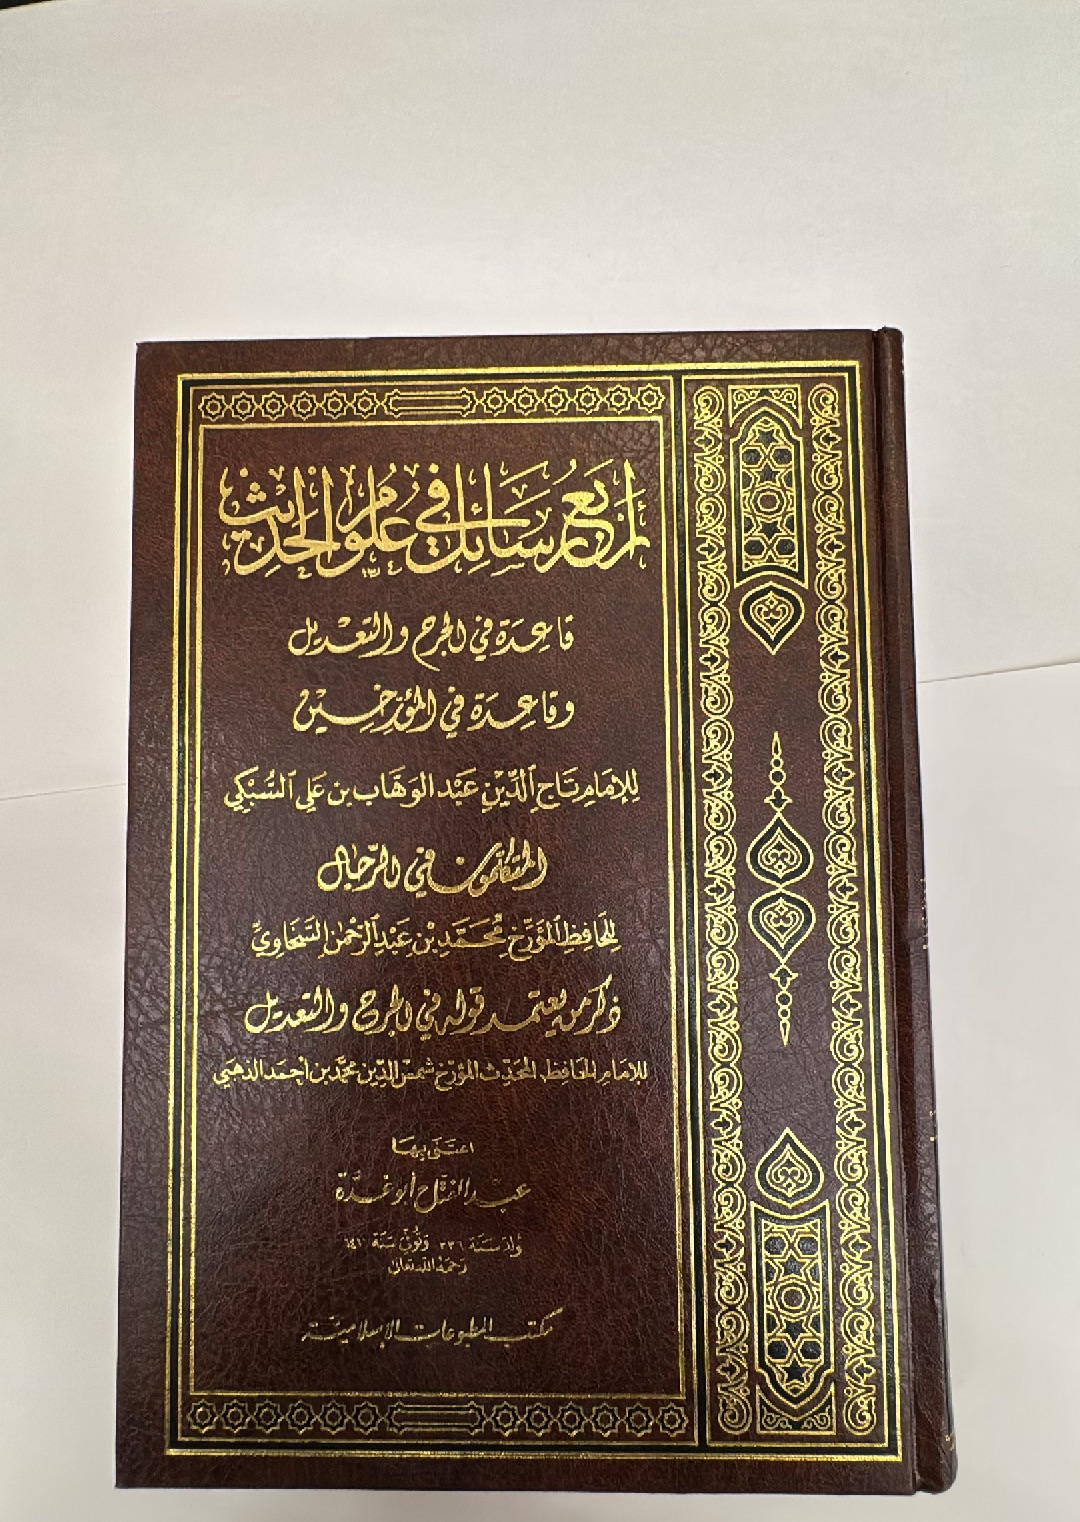 أربع رسائل في علوم الحديث
قاعدة في الجرح والتعديل
وقاعدة في المؤرخين
للإمام تاج الدين عبد الوهاب بن علي السبكي
المتكلمون في الرجال
للحافظ المؤرخ محمد بن عبد الرحمن السخاوي
ذكر من يعتمد قوله في الجرح والتعديل
للإمام الحافظ المحدث المؤرخ شمس الدين محمد بن أحمد الذهبي
اعتنى بها
عبد الفتاح أبو غدة
ولد سنة وتوفي سنة
رحمه الله تعالى
مكتب المطبوعات الإسلامية